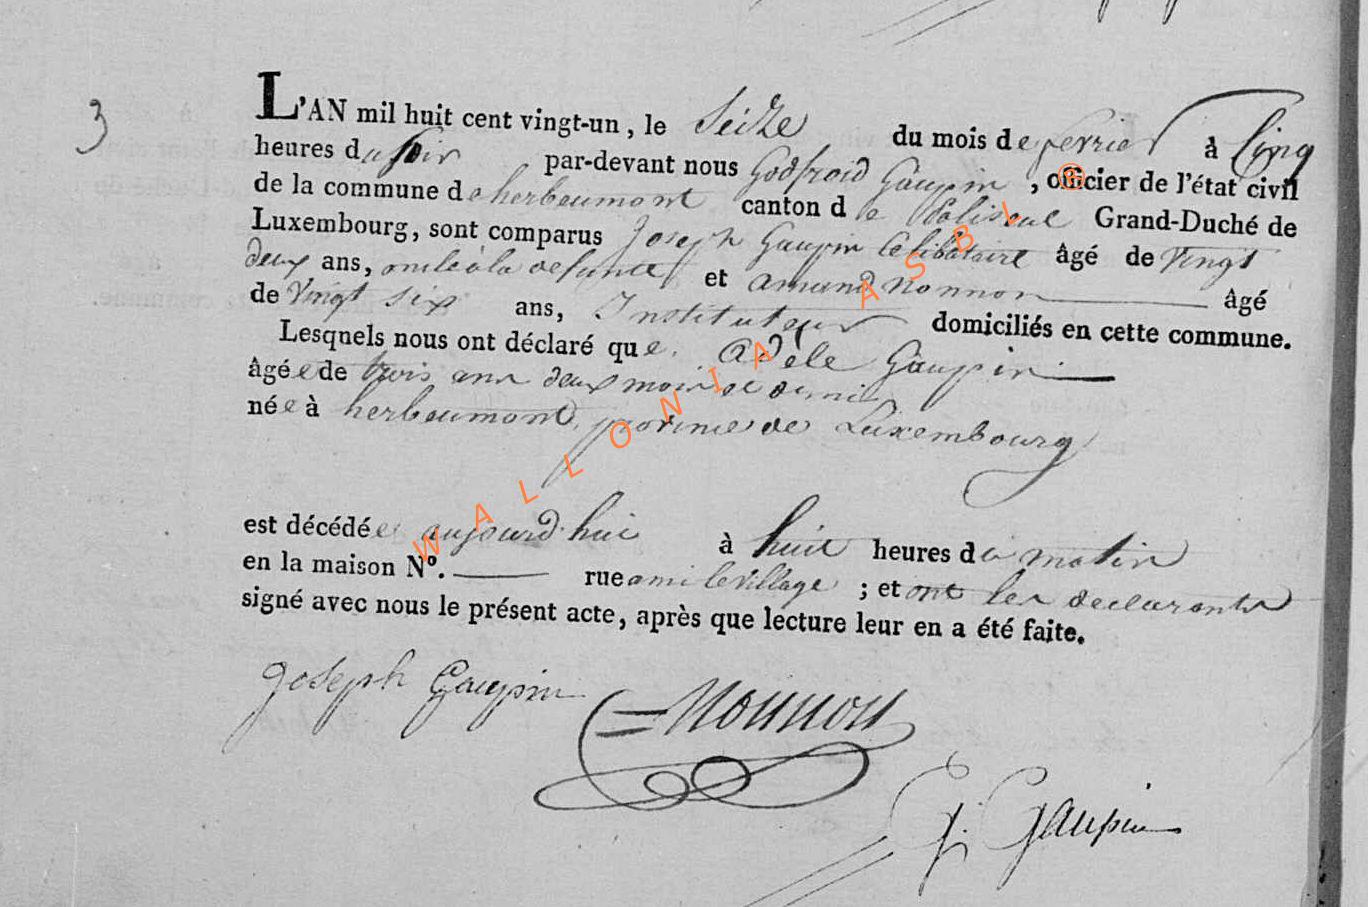 3
L'AN mil huit cent vingt-un, le Seize du mois de fevrier à Cinq
heures du soir par-devant nous Godfroid Gaupin, officier de l'état civil
de la commune de herbeumont canton de Paliseul Grand-Duché de
Luxembourg, sont comparus Joseph Gaupin Celibataire âgé de Vingt
deux ans, oncle à la defunte et amand nonnon âgé
de Vingt six ans, Instituteur domiciliés en cette commune.
Lesquels nous ont déclaré que. adèle Gaupin
âgée de trois ans deux mois et demi
née à herbeumont, province de Luxembourg
est décédée aujourd'hui à huit heures du matin
en la maison Nº. rue ami le village ; et ont les declarants
signé avec nous le présent acte, après que lecture leur en a été faite.
Joseph Gaupin
Nonnon
G. Gaupin
WALLONIA ASBL ®